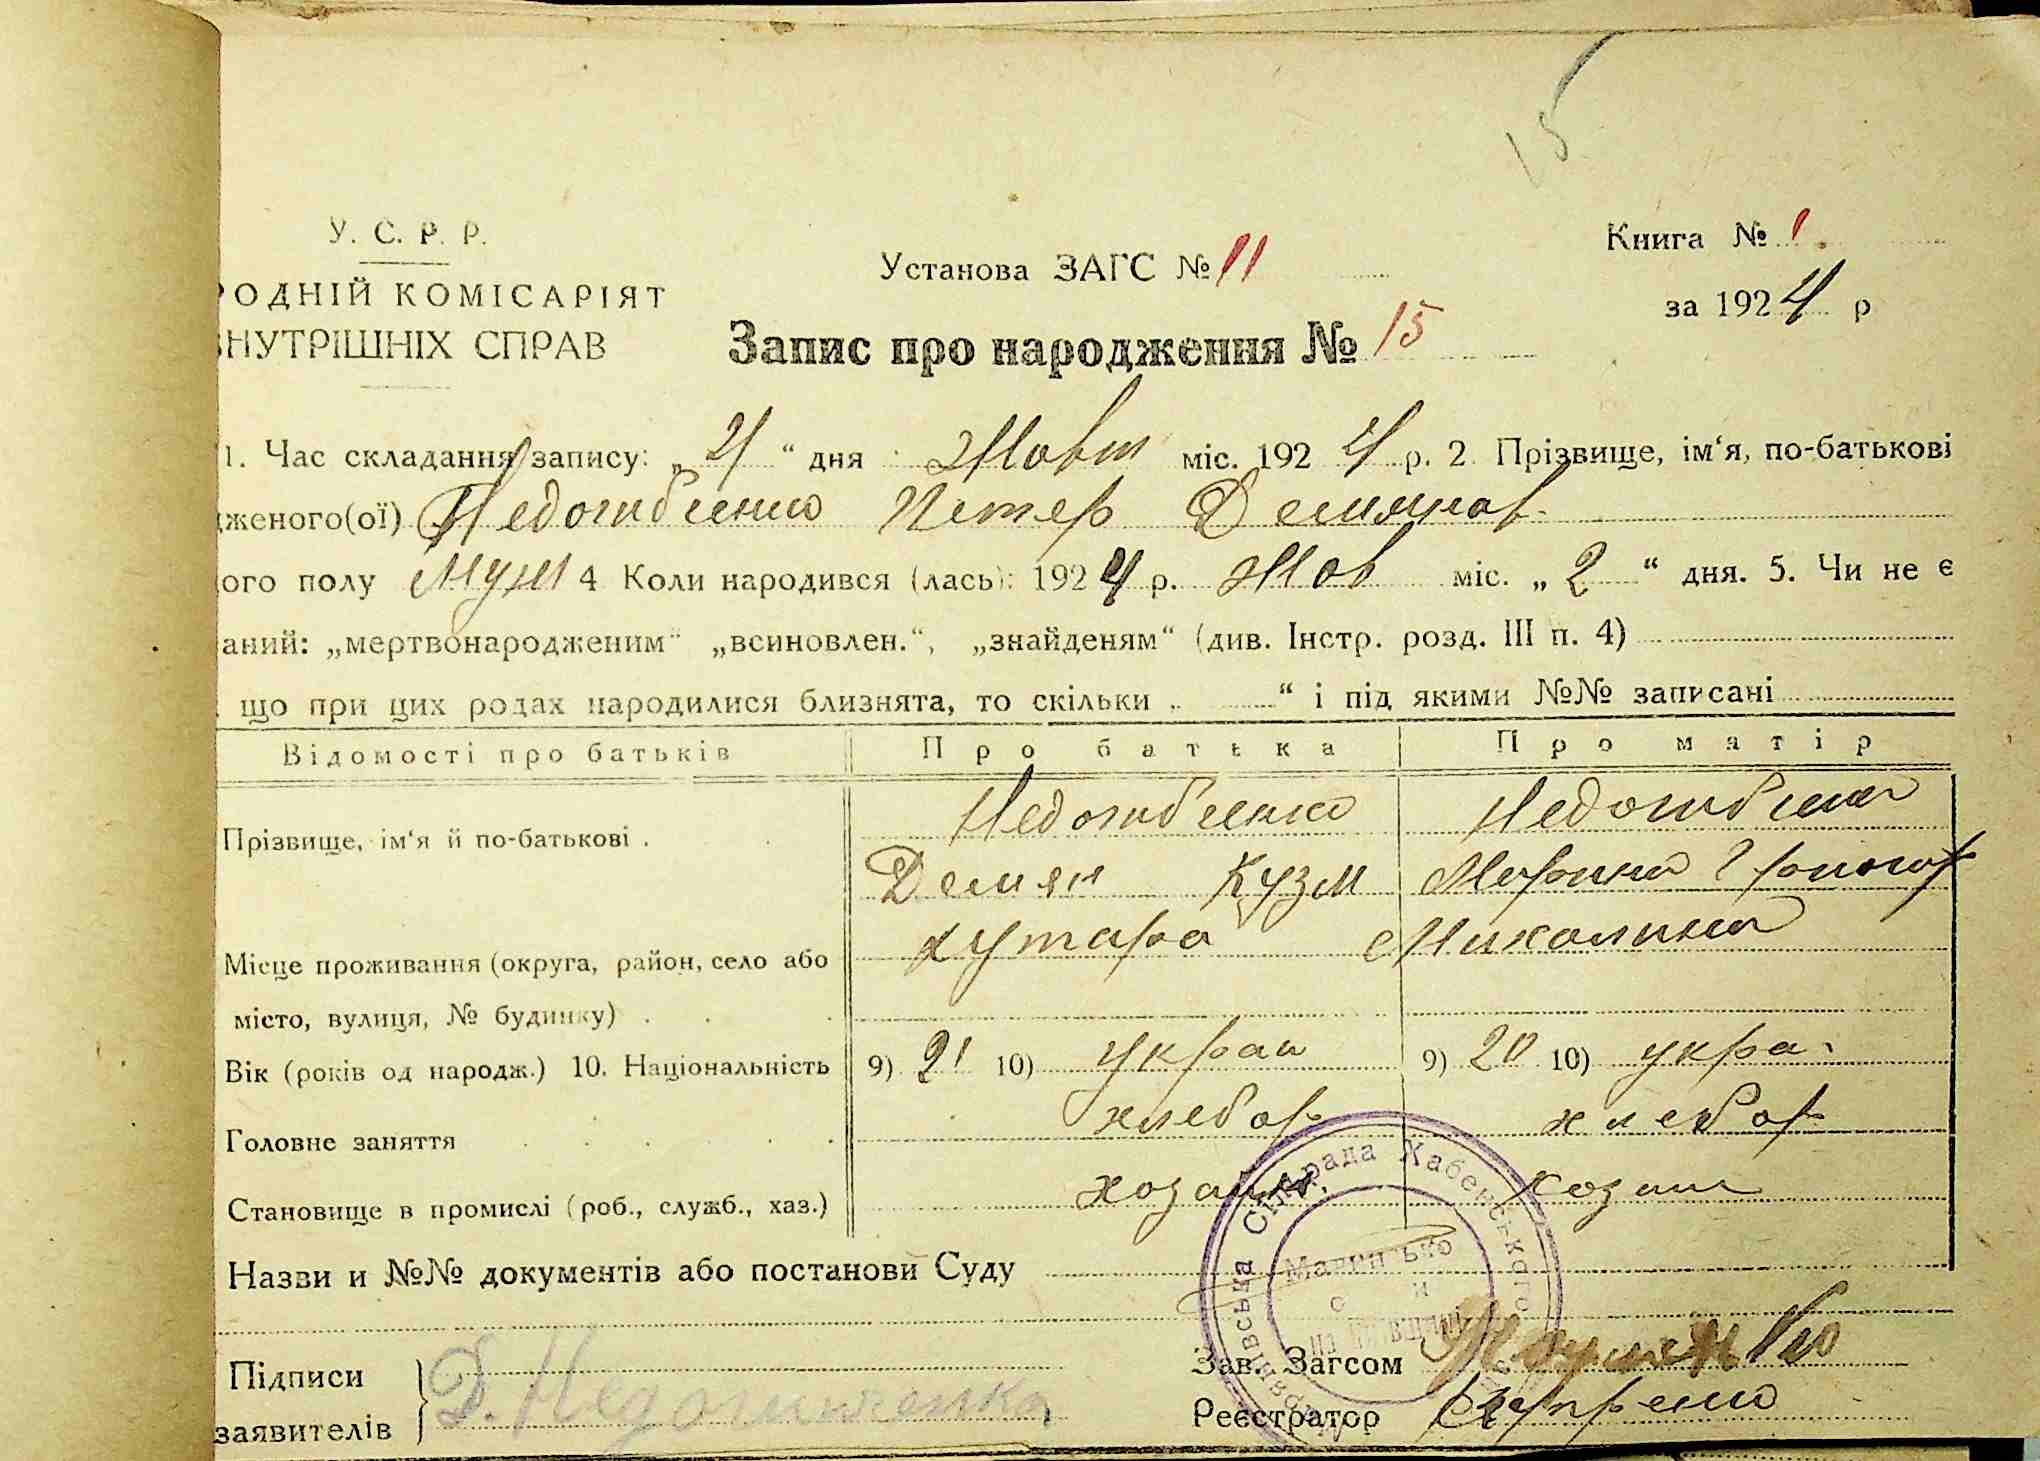 15
У. С. Р. Р.
РОДНІЙ КОМІСАРІЯТ
ВНУТРІШНІХ СПРАВ
Установа ЗАГС № 11
Книга № 1.
за 1924 р
Запис про народження № 15
1. Час складання запису: „ 4 “ дня Жовт міс. 1924 р. 2. Прізвище, ім‘я, по-батькові
дженого(ої) Петер Демянов
ого полу Муж 4 Коли народився (лась): 1924 р. Жов міс. „ 2 “ дня. 5. Чи не є
аний: „мертвонародженим“ „всиновлен.“, „знайденям“ (див. Інстр. розд. III п. 4)
що при цих родах народилися близнята, то скільки „ “ і під якими №№ записані
Відомості про батьків Про батька Про матір
Прізвище, ім‘я й по-батькові .
Демян Кузм
Місце проживання (округа, район, село або хутара
місто, вулиця, № будинку) .
Вік (років од народж.) 10. Національність 9) 21 10) украи 9) 20 10) укра
Головне заняття хлебор хлебор
Становище в промислі (роб., служб., хаз.) хозаин хозаи
Назви и №№ документів або постанови Суду
Підписи
заявителів
Зав. Загсом
Реєстратор
Сільрада Хабенського